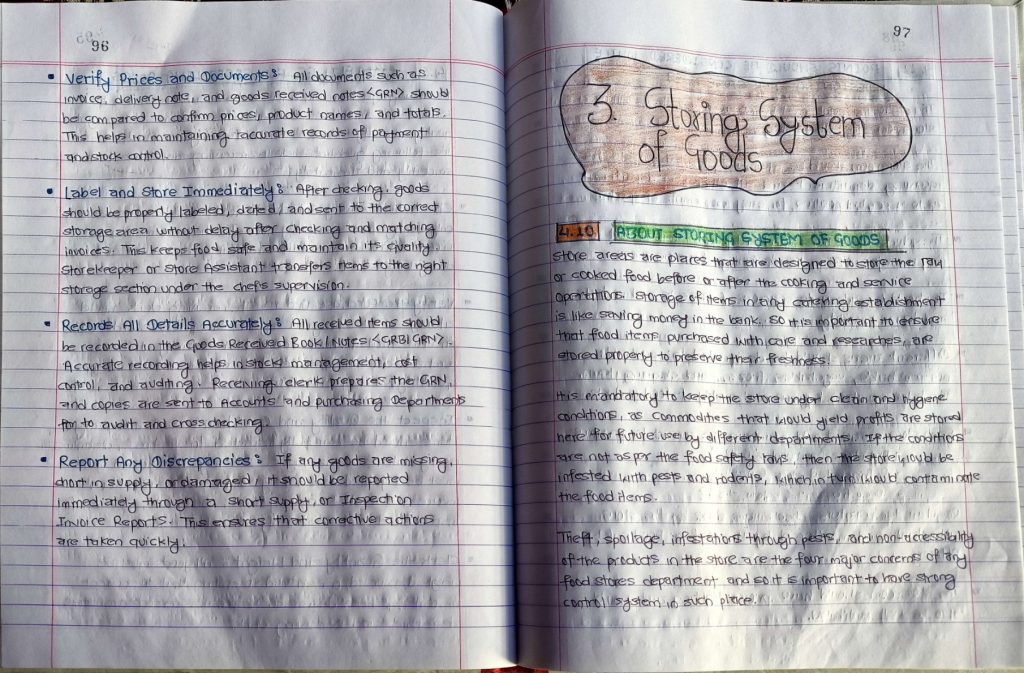 96
• Verify Prices and Documents: All documents such as
invoice, delivery note, and goods received notes <GRN> should
be compared to confirm prices, product names, and totals.
This helps in maintaining accurate records of payment
and stock control.
• Label and Store Immediately: After checking, goods
should be properly labeled, dated, and sent to the correct
storage area without delay after checking and matching
invoices. This keeps food safe and maintain its quality
Storekeeper or Store Assistant transfers items to the right
storage section under the chef's supervision.
• Records All Details Accurately: All received items should
be recorded in the Goods Received Book/Notes <GRB/GRN>.
Accurate recording helps in stock management, cost
control, and auditing. Receiving clerk prepares the GRN,
and copies are sent to Accounts and Purchasing Departments
for to audit and cross checking.
• Report Any Discrepancies: If any goods are missing,
short in supply, or damaged, it should be reported
immediately through a short supply, or Inspection
Invoice Reports. This ensures that corrective actions
are taken quickly.
97
3. Storing System
of Goods
4.10 ABOUT STORING SYSTEM OF GOODS
Store areas are places that are designed to store the raw
or cooked food before or after the cooking and service
operations. Storage of items in any catering establishment
is like saving money in the bank. So it is important to ensure
that food items purchased with care and researches, are
stored properly to preserve their freshness.
It is mandatory to keep the store under clean and hygiene
conditions, as commodities that would yield profits are stored
here for future use by different departments. If the conditions
are not as per the food safety laws, then the store would be
infested with pests and rodents, which in turn would contaminate
the food items.
Theft, spoilage, infestations through pests, and non-accessibility
of the products in the store are the four major concerns of any
food stores department and so it is important to have strong
control system in such place.